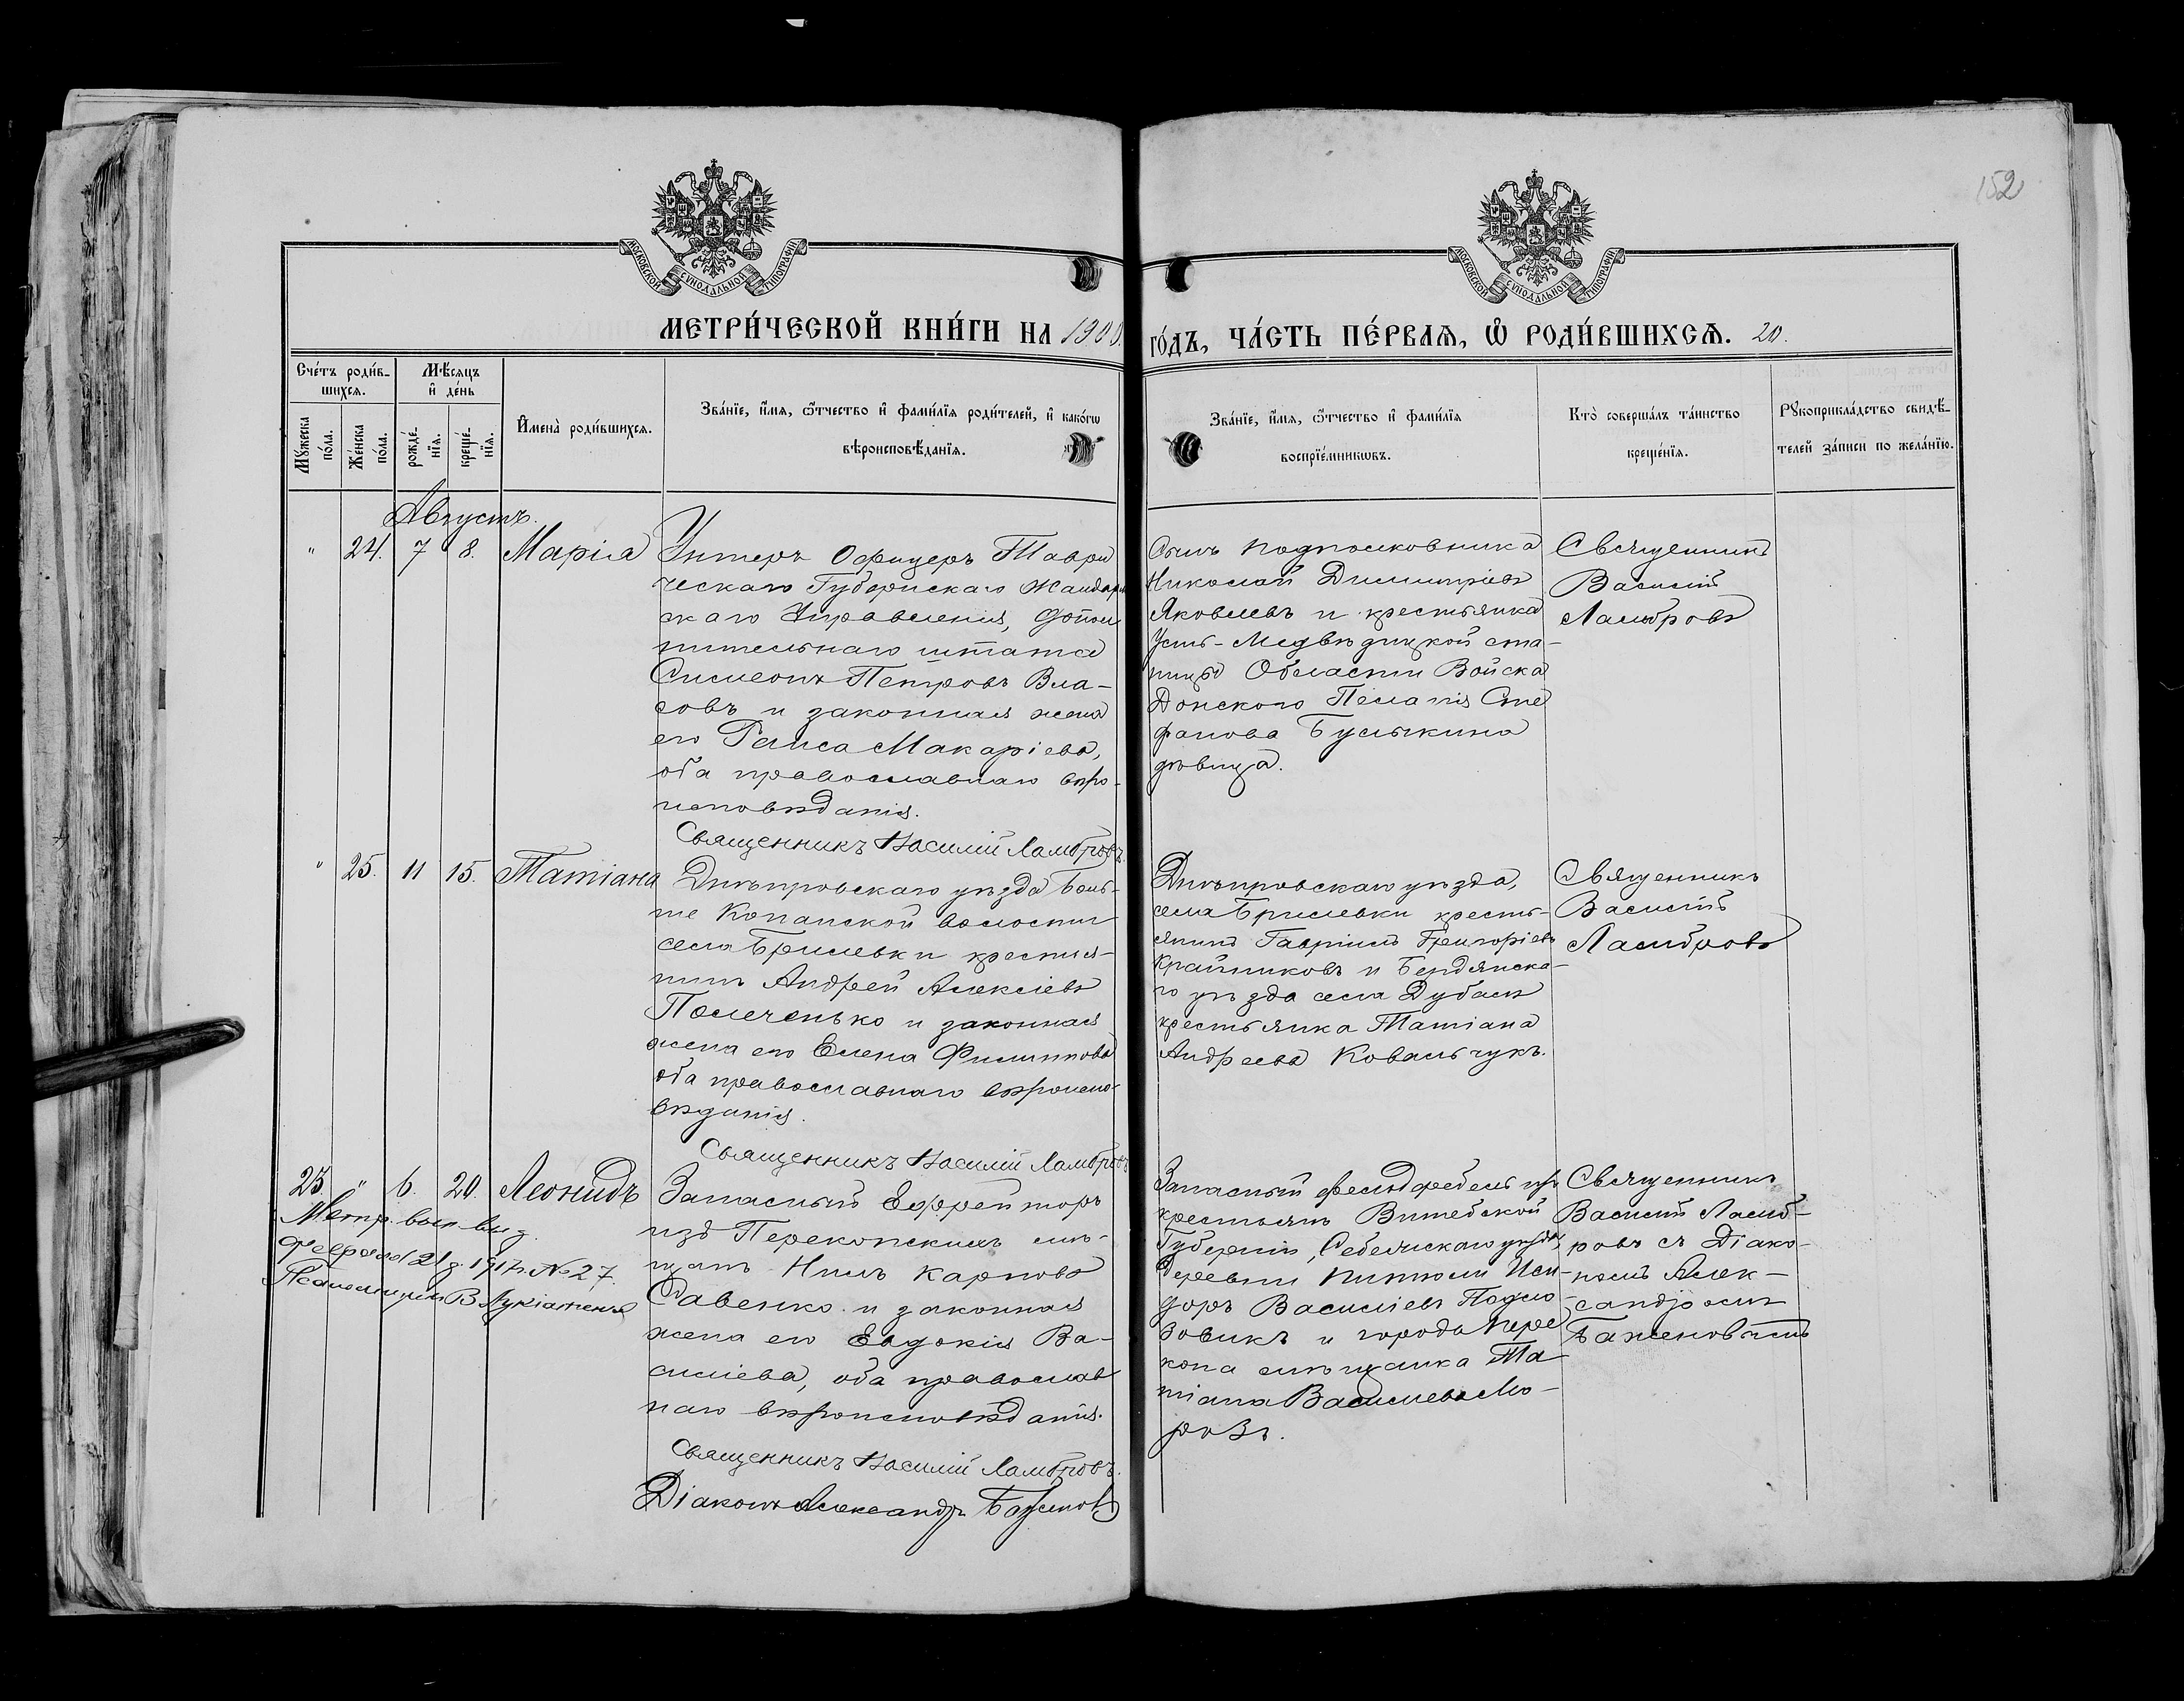 152
МОСКОВСКОЙ СѴНОДАЛЬНОЙ ТИПОГРАФІИ
МОСКОВСКОЙ СѴНОДАЛЬНОЙ ТИПОГРАФІИ
МЕТРИ́ЧЕСКОЙ КНИ́ГИ НА 1908. ГО́ДЪ, ЧА́СТЬ ПЕ́РВАѦ, Ѡ҆ РОДИ́ВШИХСѦ. 20.
Сче́тъ роди́в-
шихся.
Мѣ́сяцъ
и҆ де́нь
Мꙋ́жеска по́ла.
Же́нска по́ла.
рожде́-
нїя.
креще́-
нїя.
И҆мена̀ роди́вшихся.
Зва́нїе, и҆́мя, ѻ҆́тчество и҆ фами́лїя роди́телей, и҆ како́гѡ
вѣроисповѣ́данїя.
Зва́нїе, и҆́мя, ѻ҆́тчество и҆ фами́лїя
воспрїе́мникѡвъ.
Кто̀ соверша́лъ та́инство
креще́нїя.
Рꙋкоприкла́дство свидѣ́-
телей за́писи по жела́нїю.
Августъ.
" 24. 7 8. Марія
Унтеръ Офицеръ Таври
ческаго Губернскаго Жандарм
скаго Управленія, допол
нительнаго штата
Симеонъ Петровъ Вла-
совъ и законная жена
его Раиса Макаріева,
оба православнаго вѣро-
исповѣданія.
Священникъ Василій Ламбровъ.
Сынъ подполковника
Николай Димитріевъ
Яковлевъ и крестьянка
Усть-Медвѣдицкой ста-
ницы Области Войска
Донского Пелагія Сте
фанова Булыкина
дѣвица.
Священникъ
Василій
Ламбровъ
" 25. 11 15. Татіана
Днѣпровскаго уѣзда Боль-
ше Копанской волости
села Брилевки крестья-
нинъ Андрей Алексіевъ
Полеченько и законная
жена его Елена Филиппова
оба православнаго вѣроиспо-
вѣданія.
Священникъ Василій Ламбровъ
Днѣпровскаго уѣзда,
села Брилевки кресть-
янинъ Гавріилъ Григоріевъ
Крайниковъ и Бердянска-
го уѣзда села Дубаси
крестьянка Татіана
Андреева Ковальчукъ.
Священникъ
Василій
Ламбровъ
25. " 6. 20. Леонидъ
Метр. вып. выд.
Февраля 21 д. 1917 г. № 27.
Псаломщикъ В.
Запасный Ефрейторъ
изъ Перекопскихъ мѣ-
щанъ Нилъ Карповъ
Савенко и законная
жена его Евдокія Ва-
силіева, оба православ
наго вѣроисповѣданія.
Священникъ Василій Ламбровъ.
Діаконъ Александръ Баженовъ
Запасный фельдфебель изъ
крестьянъ Витебской
Губерніи, Себежскаго уѣзда,
деревни Иси-
доръ Василіевъ
и города Пере
копа мѣщанка Та-
тіана Василіева Мо-
розъ.
Священникъ
Василій Ламб-
ровъ съ Діако-
номъ Алек-
сандромъ
Баженовымъ